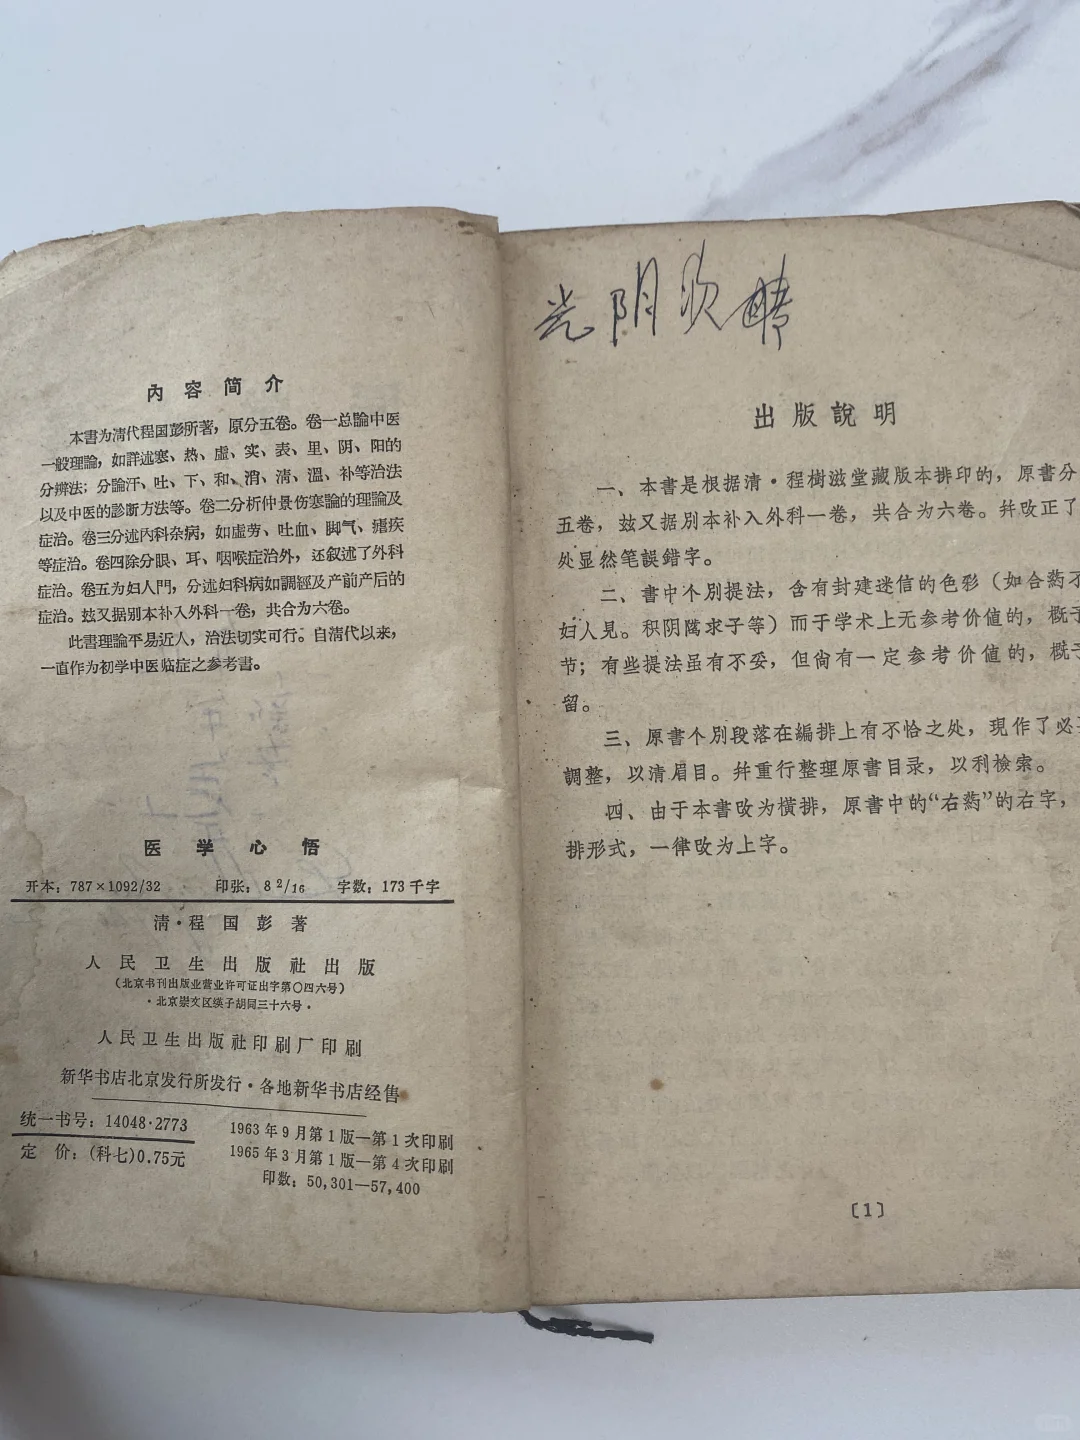 內容简介
本書为清代程国彭所著，原分五卷。卷一总論中医
一般理論，如詳述寒、热、虛、实、表、里、阴、阳的
分辨法；分論汗、吐、下、和、消、清、溫、补等治法
以及中医的診断方法等。卷二分析仲景伤寒論的理論及
症治。卷三分述內科杂病，如虛劳、吐血、脚气、瘧疾
等症治。卷四除分眼、耳、咽喉症治外，还叙述了外科
症治。卷五为妇人門，分述妇科病如調經及产前产后的
症治。玆又据別本补入外科一卷，共合为六卷。
此書理論平易近人，治法切实可行。自清代以来，
一直作为初学中医临症之参考書。
医学心悟
开本：787×1092/32 印张：8 2/16 字数：173千字
清·程国彭著
人民卫生出版社出版
（北京书刊出版业营业许可证出字第〇四六号）
·北京崇文区緓子胡同三十六号·
人民卫生出版社印刷厂印刷
新华书店北京发行所发行·各地新华书店经售
统一书号：14048·2773
定 价：(科七)0.75元
1963年9月第1版—第1次印刷
1965年3月第1版—第4次印刷
印数：50,301—57,400
光阴
出版說明
一、本書是根据清·程樹滋堂藏版本排印的，原書分
五卷，玆又据別本补入外科一卷，共合为六卷。幷改正了
处显然笔誤錯字。
二、書中个別提法，含有封建迷信的色彩（如合葯不
妇人見。积阴隲求子等）而于学术上无参考价値的，概予
节；有些提法虽有不妥，但尙有一定参考价値的，概予
留。
三、原書个別段落在編排上有不恰之处，現作了必要
調整，以清眉目。幷重行整理原書目录，以利檢索。
四、由于本書改为橫排，原書中的“右葯”的右字，
排形式，一律改为上字。
〔1〕